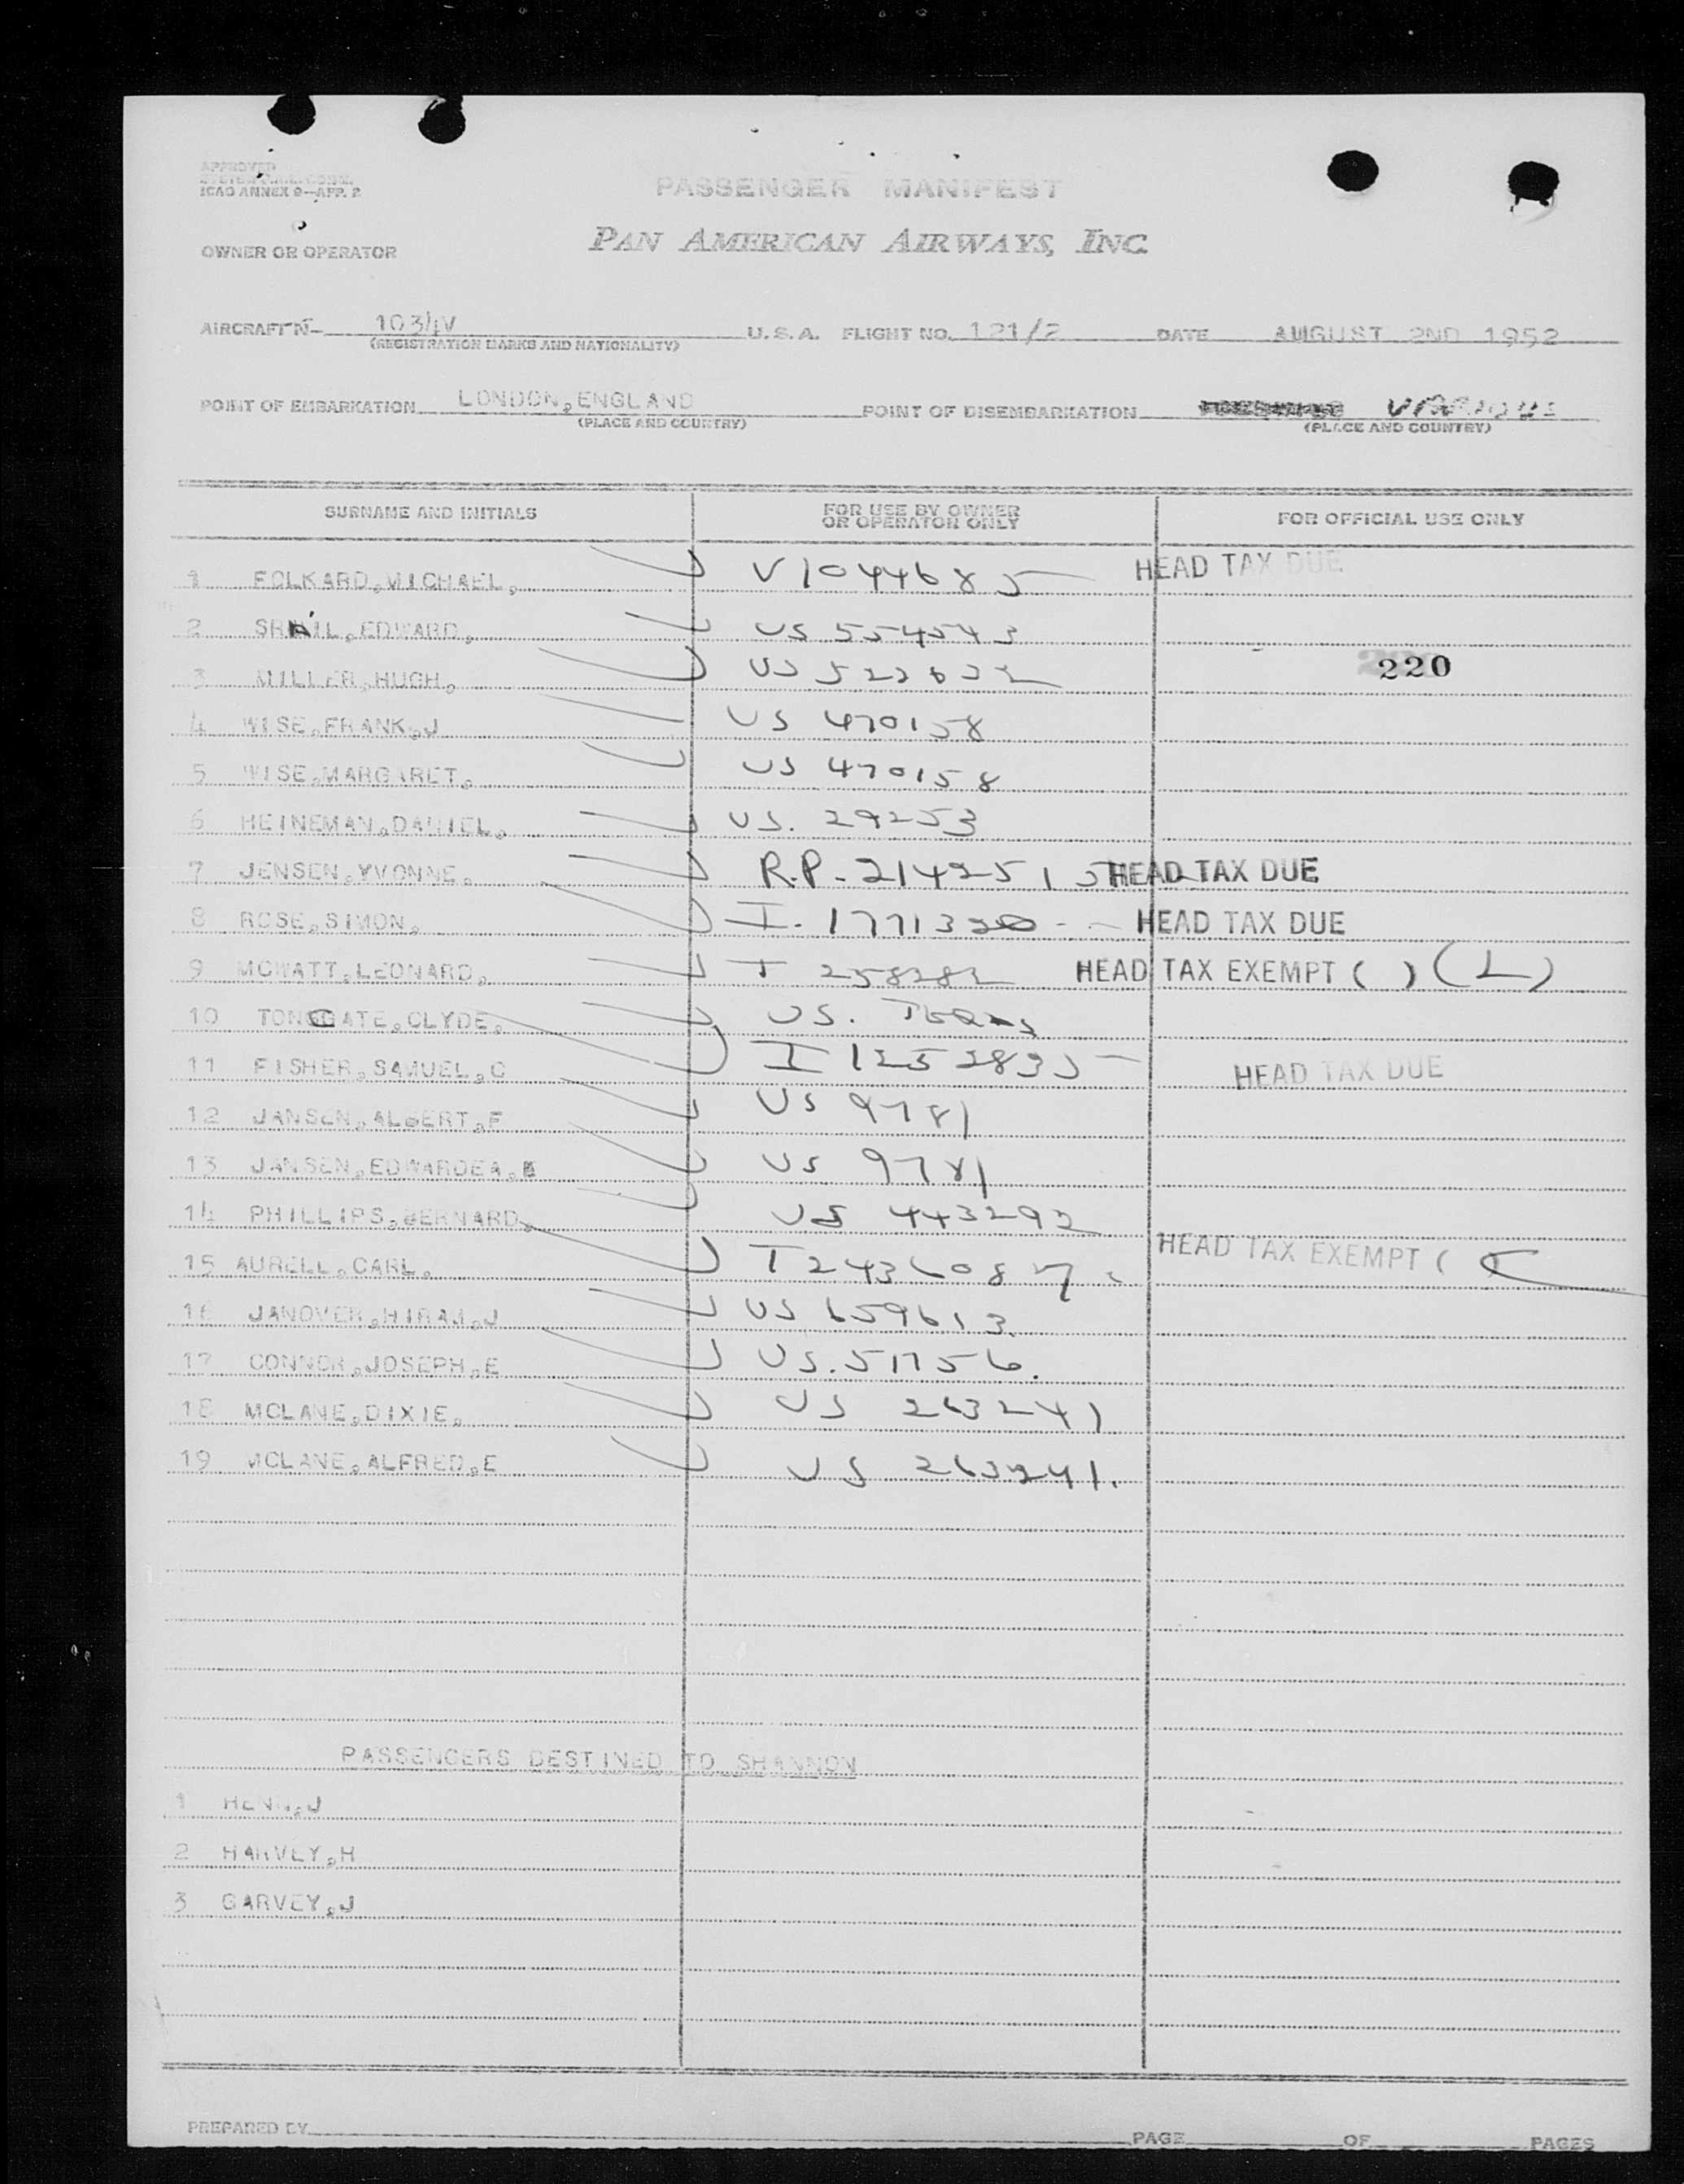 APPROVED
ICAO ANNEX 9—APP. 2
PASSENGER MANIFEST
OWNER OR OPERATOR
PAN AMERICAN AIRWAYS, INC.
AIRCRAFT N- 1034V U.S.A. FLIGHT NO. 121/2 DATE AUGUST 2ND 1952
(REGISTRATION MARKS AND NATIONALITY)
POINT OF EMBARKATION LONDON, ENGLAND POINT OF DISEMBARKATION VARIOUS
(PLACE AND COUNTRY) (PLACE AND COUNTRY)
SURNAME AND INITIALS FOR USE BY OWNER OR OPERATOR ONLY FOR OFFICIAL USE ONLY
1 FOLKARD, MICHAEL, V1044685 HEAD TAX DUE
2 EDWARD, US 554543
3 MILLER, HUGH, US 522632
220
4 WISE, FRANK, J US 470158
5 WISE, MARGARET, US 470158
6 HEINEMAN, DANIEL, US. 29253
7 JENSEN, YVONNE, R.P-214251 HEAD TAX DUE
8 ROSE, SIMON, I-1771320 HEAD TAX DUE
9 MOWATT, LEONARD, T 258282 HEAD TAX EXEMPT ( ) (L)
10 TONGGATE, CLYDE, US.
11 FISHER, SAMUEL, C I 1252835 HEAD TAX DUE
12 JANSEN, ALBERT, F US 9781
13 JANSEN, EDWARDEA, US 9781
14 PHILLIPS, BERNARD, US 443292
15 AURELL, CARL, T243608 HEAD TAX EXEMPT (
16 JANOVER, HIRAM, J US 659613
17 CONNOR, JOSEPH, E US. 51756.
18 MCLANE, DIXIE, US 263241
19 MCLANE, ALFRED, E US 263241.
PASSENGERS DESTINED TO SHANNON
1 HENN, J
2 HARVEY, H
3 GARVEY, J
PREPARED BY PAGE OF PAGES